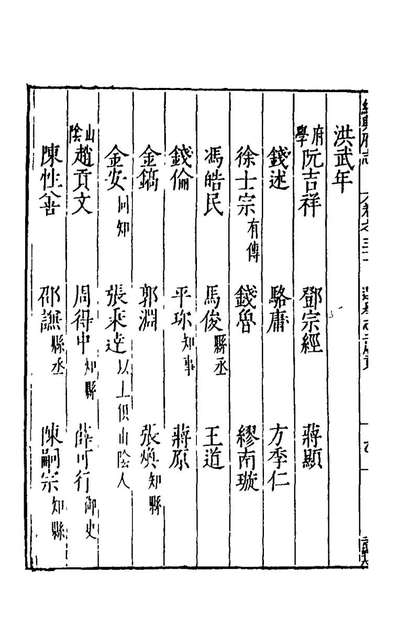 洪武年
府學阮吉祥 鄧宗經 蔣顯
錢述 駱庸 方季仁
徐士宗有傳 錢魯 繆南璇
馮皓民 馬俊縣丞 王道
錢倫 平珎知事 蔣原
金鎬 郭淵 張煥知縣
金安同知 張秉達以上俱山陰人
山陰趙貢文 周得中知縣 薛可行御史
陳性善 邵譓縣丞 陳嗣宗知縣